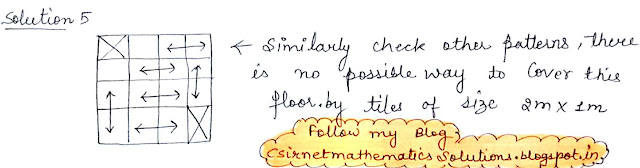 Solution 5
← Similarly check other patterns, there
is no possible way to cover this
floor. by tiles of size 2m x 1m
Follow my Blog
csirnetmathematicssolutions.blogspot.in